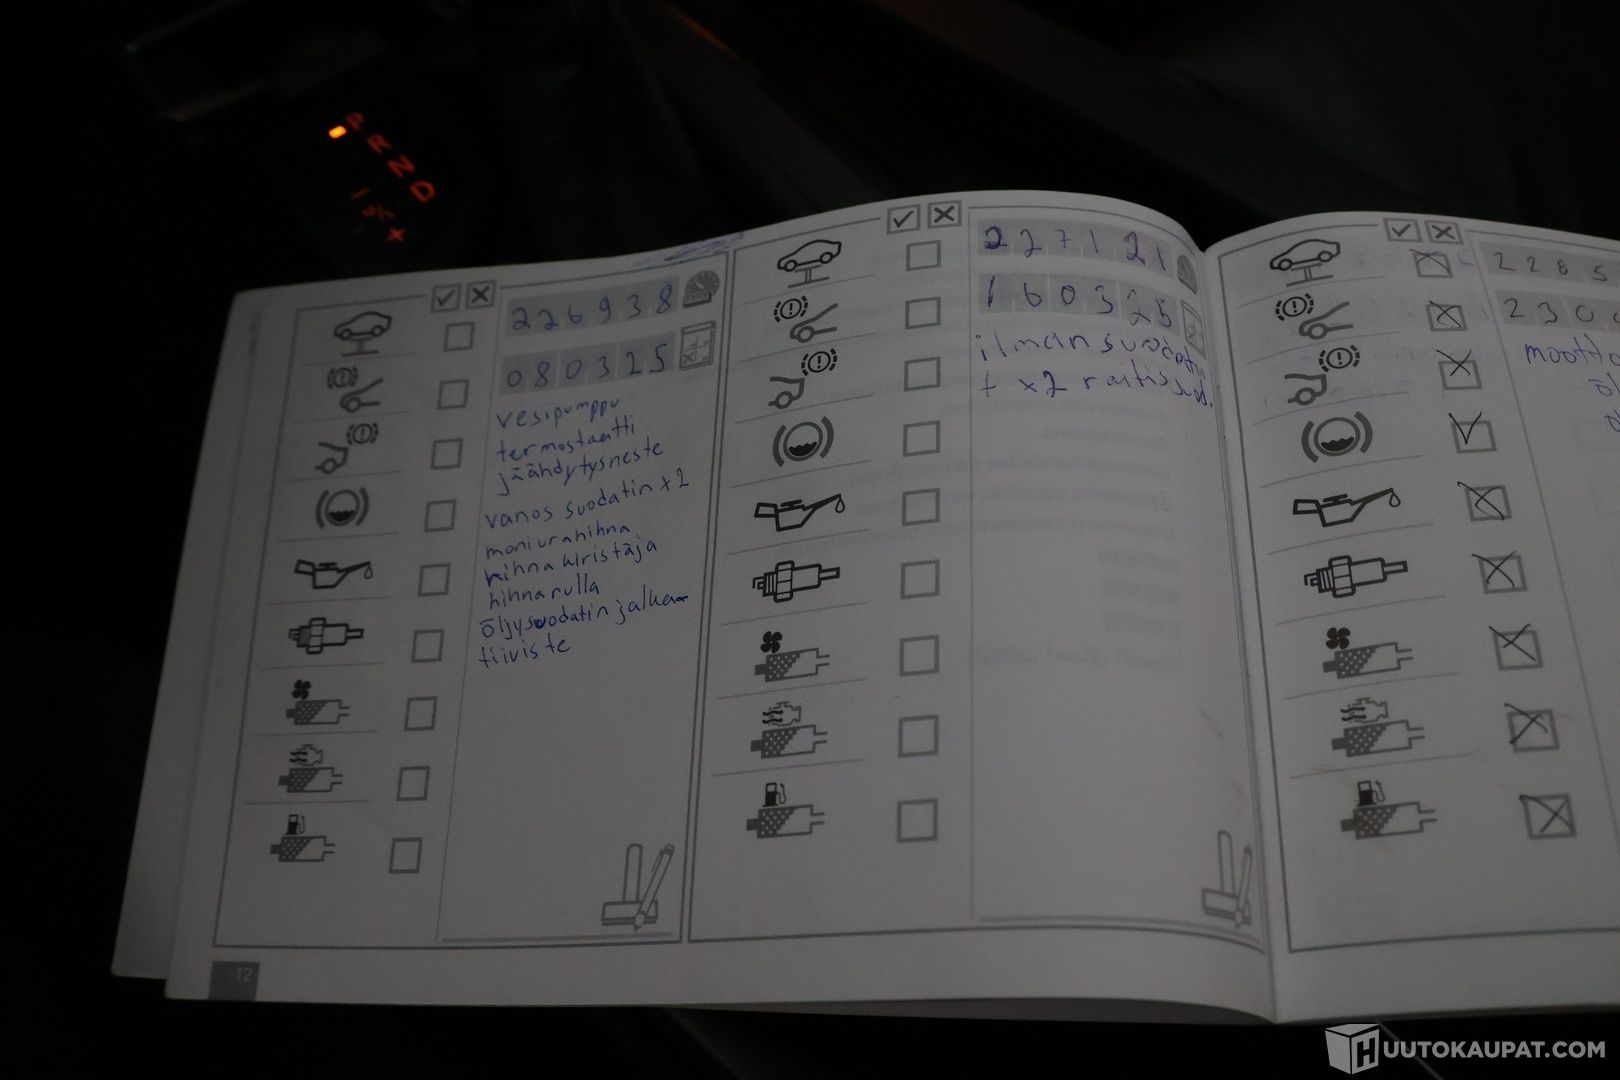 P
R
N
D
226938
080325
vesipumppu
termostaatti
jäähdytysneste
vanos suodatin x2
moniurahihna
hihna kiristäjä
hihnarulla
öljysuodatin jalka-
tiiviste
12
227121
160325
ilman suodatin
+ x2 raitis suod.
2285
230
HUUTOKAUPAT.COM